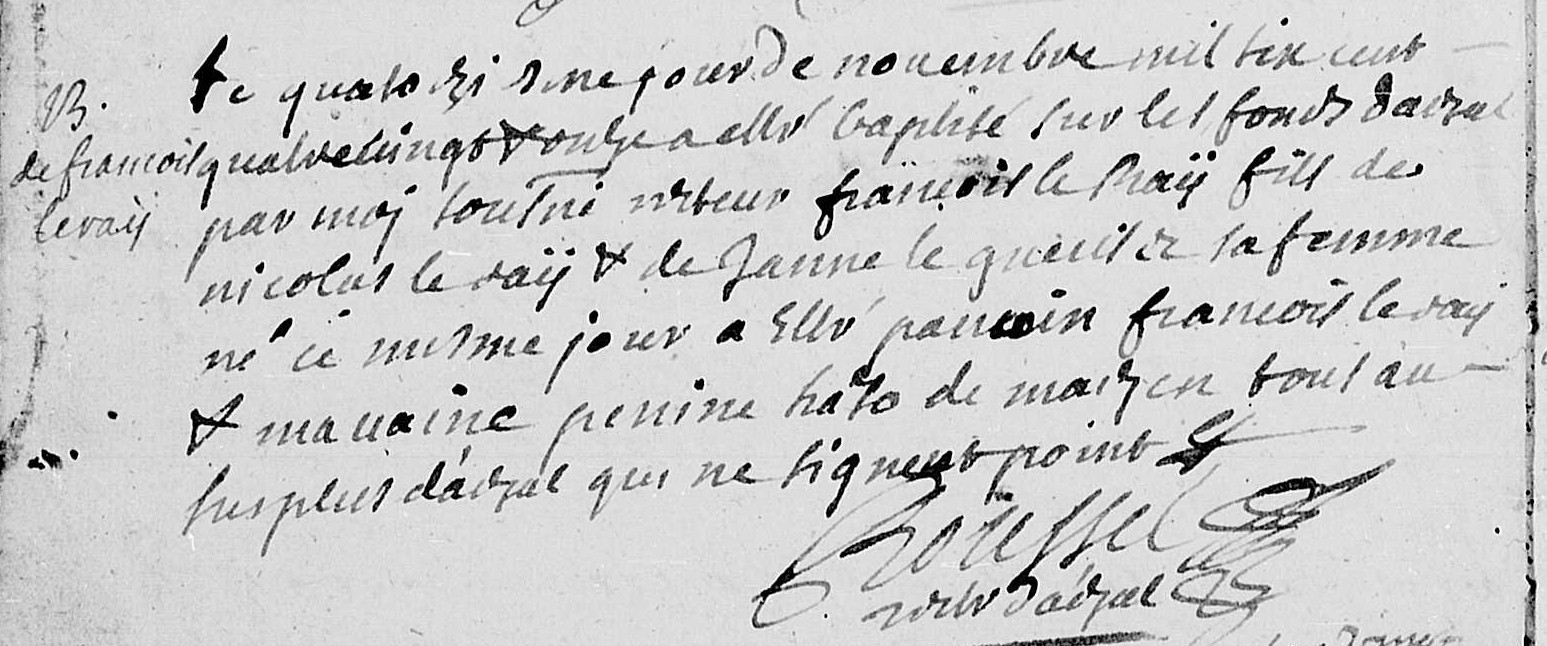 B.
de francois
le raij
Le quatorziesme jour de novembre mil six cent
quatrevingt & onze a esté baptisé sur les fonds dadzal
par moj soussné recteur francois le Raij fils de
nicolas le raij & de Janne le sa femme
né ce mesme jour a Esté parrein francois le raij
& maraine perrine de tous au
surplus dádzal qui ne signent point
Roüssel
rectr dádzal